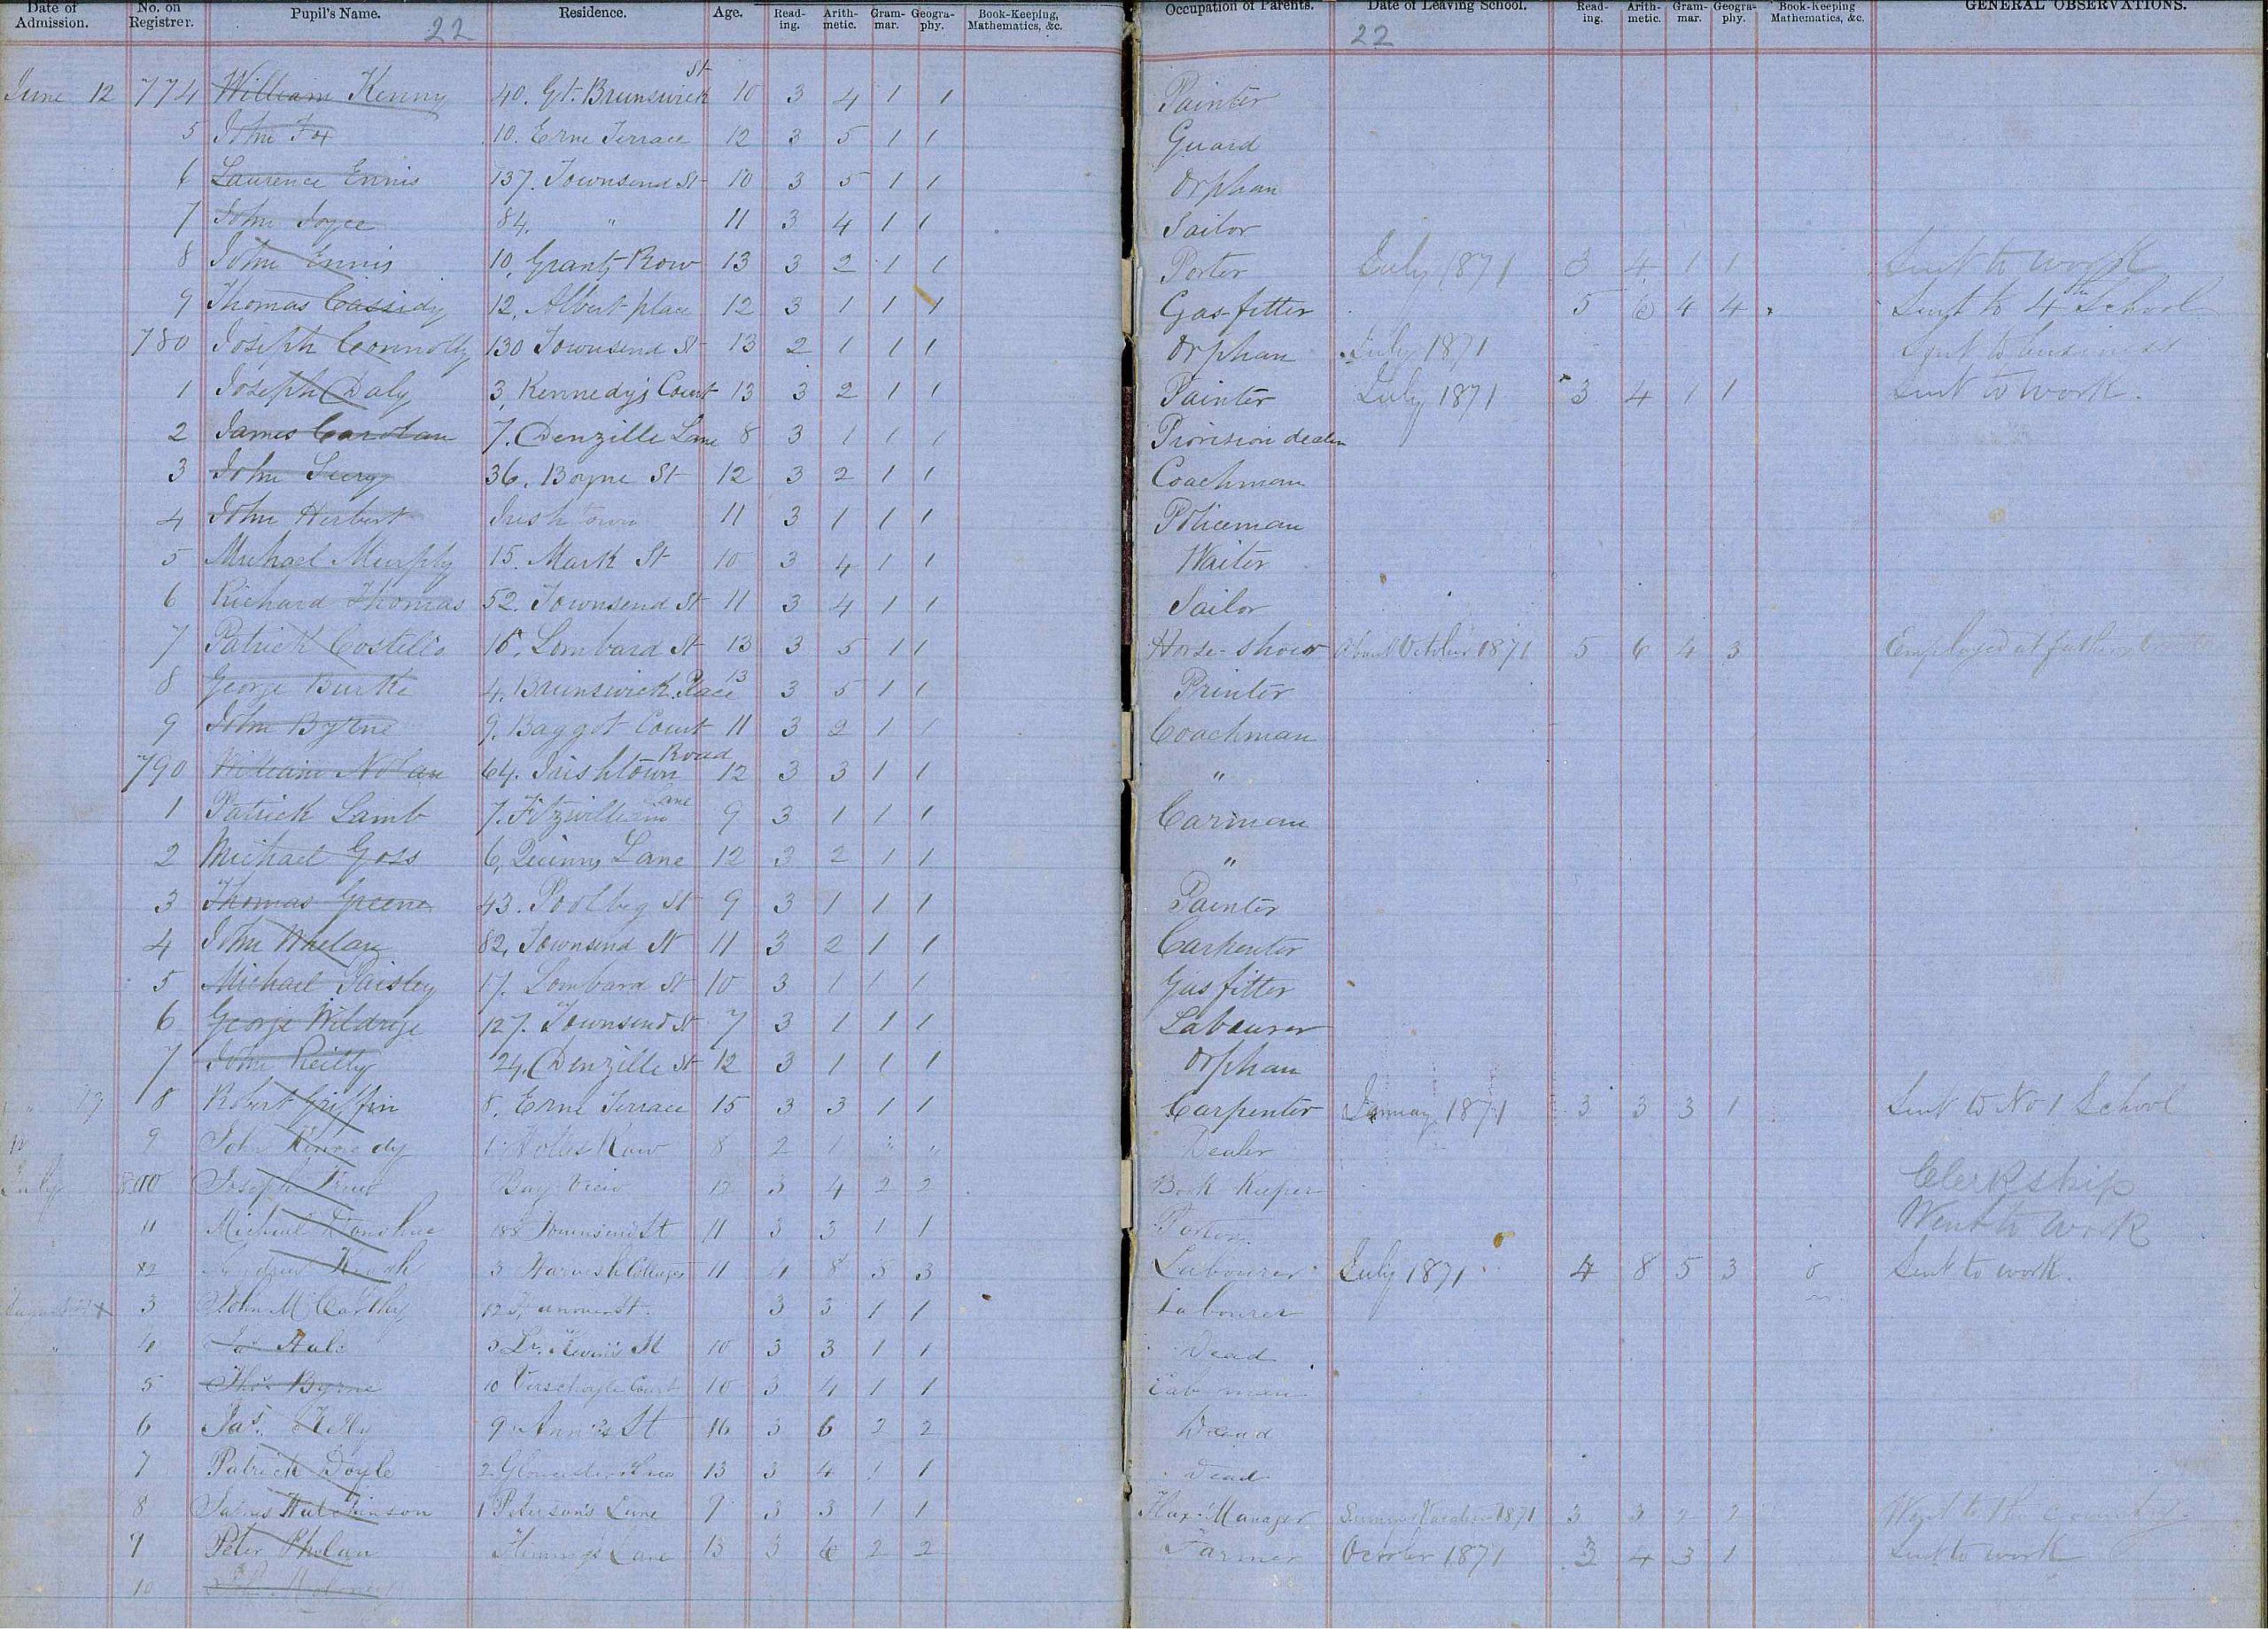 Date of Admission. No. on Registrer. Pupil's Name. Residence. Age. Read-ing. Arith-metic. Gram-mar. Geogra-phy. Book-Keeping, Mathematics, &c. Occupation of Parents. Date of Leaving School. Read-ing. Arith-metic. Gram-mar. Geogra-phy. Book-Keeping Mathematics, &c. GENERAL OBSERVATIONS.
22 22
June 12 774 William Kenny 40. Gt. Brunswick St 10 3 4 1 1 Painter
5 John Fox 10. Erne Terrace 12 3 5 1 1 Guard
6 Laurence Ennis 137. Townsend St 10 3 5 1 1 Orphan
7 John Joyce 84. " 11 3 4 1 1 Sailor
8 John Ennis 10, Grants Row 13 3 2 1 1 Porter July 1871 3 4 1 1 Sent to work
9 Thomas Cassidy 12, Albert place 12 3 1 1 1 Gas-fitter 5 6 4 4 Sent to 4th School
780 Joseph Connolly 130 Townsend St 13 2 1 1 1 Orphan July 1871 Sent to business
1 Joseph Daly 3, Kennedy's Court 13 3 2 1 1 Painter July 1871 3 4 1 1 Sent to work.
2 James Carolan 7. Denzille Lane 8 3 1 1 1 Provision dealer
3 John Seery 36. Boyne St 12 3 2 1 1 Coachman
4 John Herbert Irishtown 11 3 1 1 1 Policeman
5 Michael Murphy 15. Mark St 10 3 4 1 1 Waiter
6 Richard Thomas 52. Townsend St 11 3 4 1 1 Sailor
7 Patrick Costello 16, Lombard St 13 3 5 1 1 Horse-shoer About October 1871 5 6 4 3 Employed at fathers
8 George Burke 4, Brunswick Place 13 3 5 1 1 Printer
9 John Byrne 9. Baggot Court 11 3 2 1 1 Coachman
790 William Nolan 64. Irishtown Road 12 3 3 1 1 "
1 Patrick Lamb 7. Fitzwilliam Lane 9 3 1 1 1 Carman
2 Michael Goss 6, Quinns Lane 12 3 2 1 1 "
3 Thomas Greene 43. Poolbeg St 9 3 1 1 1 Painter
4 John Whelan 82, Townsend St 11 3 2 1 1 Carpenter
5 Michael Paisley 17. Lombard St 10 3 1 1 1 Gas fitter
6 George Wildrige 127. Townsend St 7 3 1 1 1 Labourer
7 John Reilly 24, Denzille St 12 3 1 1 1 Orphan
" 8 Robert Griffin 8, Erne Terrace 15 3 3 1 1 Carpenter January 1871 3 3 3 1 Sent to No 1 School
9 John Kennedy 1 Holles Row 8 2 1 " " Dealer
July 800 Joseph Bay View 12 3 4 2 2 Book Keeper Clerkship
11 Michael Donohue 188 Townsend St 11 3 3 1 1 Porter Went to work
2 Andrew Keogh 3 Cottages 11 4 8 5 3 Labourer July 1871 4 8 5 3 0 Sent to work.
August 3 John McCarthy 12 Hanover St. 3 3 1 1 Labourer
" 4 Jas Hale 3 Lr. Kevin's St 10 3 3 1 1 Dead
5 Thos Byrne 10 Verschoyle Court 10 3 4 1 1 Cab man
6 Jas. Kelly 9 Anne's St 16 3 6 2 2 Dead
7 Patrick Doyle 2 Gloucester 13 3 4 1 1 Dead
8 James Hutchinson 1 Peterson's Lane 9 3 3 1 1 Manager 1871 3 3 2 2 Went to the country
9 Peter Phelan Lane 13 3 6 2 2 Farmer October 1871 3 4 3 1 Sent to work
10 Moloney